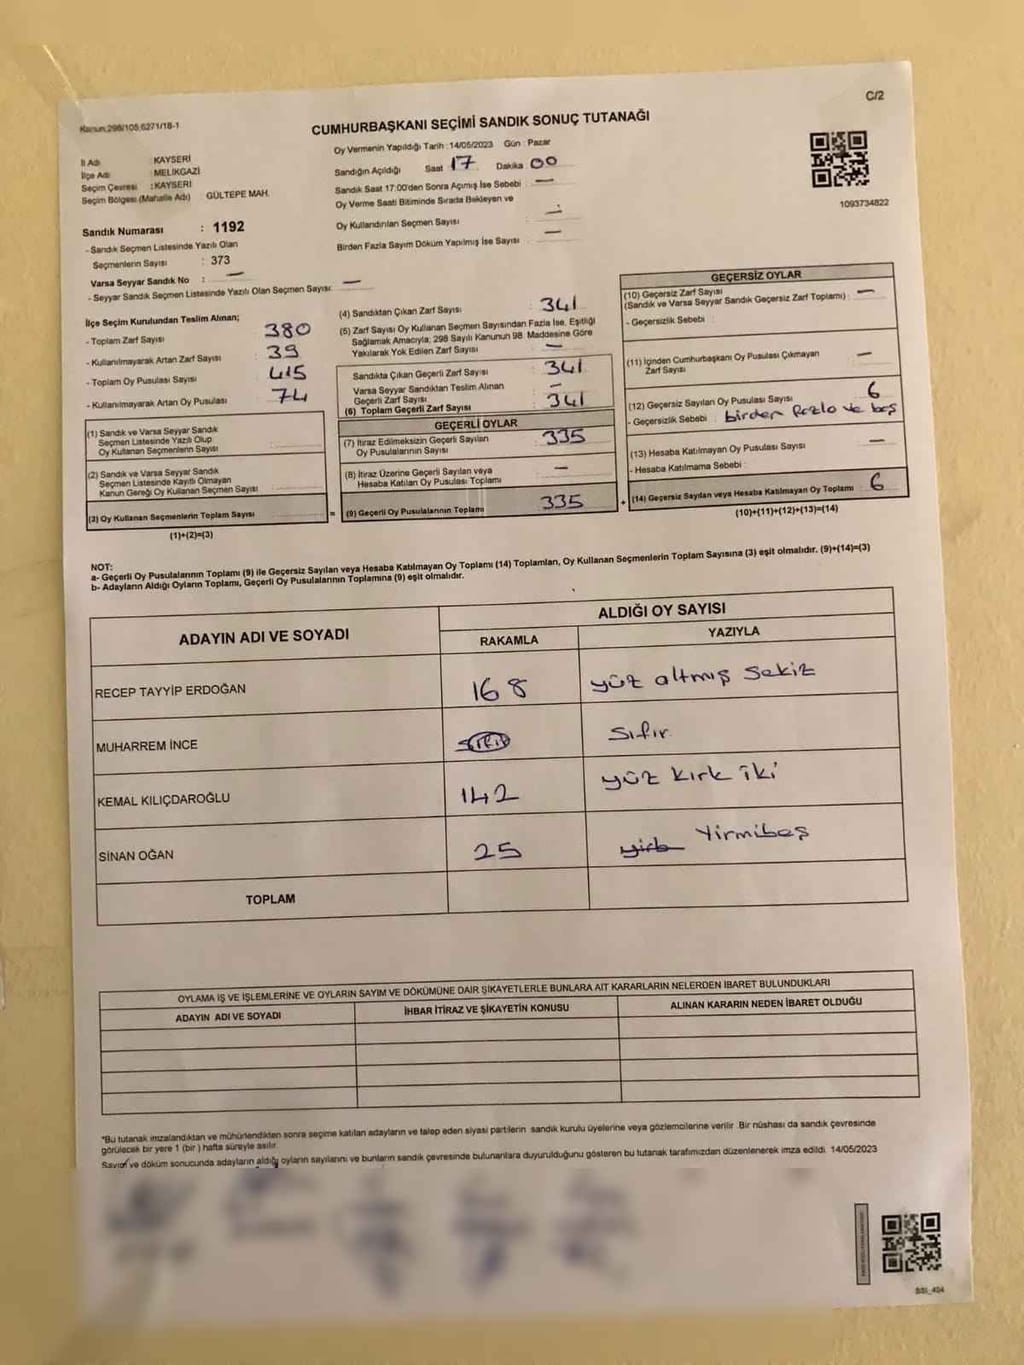 C/2
Kanun:298/105,6271/18-1
CUMHURBAŞKANI SEÇİMİ SANDIK SONUÇ TUTANAĞI
İl Adı : KAYSERİ
İlçe Adı : MELİKGAZİ
Seçim Çevresi : KAYSERİ
Seçim Bölgesi (Mahalle Adı) GÜLTEPE MAH.
Oy Vermenin Yapıldığı Tarih : 14/05/2023 Gün : Pazar
Sandığın Açıldığı Saat 17 Dakika 00
Sandık Saat 17:00'den Sonra Açımış İse Sebebi : —
Oy Verme Saati Bitiminde Sırada Bekleyen ve
Oy Kullandırılan Seçmen Sayısı : —
Birden Fazla Sayım Döküm Yapılmış İse Sayısı : —
1093734822
Sandık Numarası : 1192
- Sandık Seçmen Listesinde Yazılı Olan
Seçmenlerin Sayısı : 373
Varsa Seyyar Sandık No : —
- Seyyar Sandık Seçmen Listesinde Yazılı Olan Seçmen Sayısı: —
İlçe Seçim Kurulundan Teslim Alınan;
- Toplam Zarf Sayısı 380
- Kullanılmayarak Artan Zarf Sayısı 39
- Toplam Oy Pusulası Sayısı 415
- Kullanılmayarak Artan Oy Pusulası 74
(1) Sandık ve Varsa Seyyar Sandık
Seçmen Listesinde Yazılı Olup
Oy Kullanan Seçmenlerin Sayısı
(2) Sandık ve Varsa Seyyar Sandık
Seçmen Listesinde Kayıtlı Olmayan
Kanun Gereği Oy Kullanan Seçmen Sayısı :
(3) Oy Kullanan Seçmenlerin Toplam Sayısı
(1)+(2)=(3)
(4) Sandıktan Çıkan Zarf Sayısı : 341
(5) Zarf Sayısı Oy Kullanan Seçmen Sayısından Fazla İse, Eşitliği
Sağlamak Amacıyla; 298 Sayılı Kanunun 98. Maddesine Göre
Yakılarak Yok Edilen Zarf Sayısı : —
Sandıkta Çıkan Geçerli Zarf Sayısı : 341
Varsa Seyyar Sandıktan Teslim Alınan
Geçerli Zarf Sayısı : —
(6) Toplam Geçerli Zarf Sayısı : 341
GEÇERLİ OYLAR
(7) İtiraz Edilmeksizin Geçerli Sayılan
Oy Pusulalarının Sayısı : 335
(8) İtiraz Üzerine Geçerli Sayılan veya
Hesaba Katılan Oy Pusulası Toplamı : —
= (9) Geçerli Oy Pusulalarının Toplamı 335 +
GEÇERSİZ OYLAR
(10) Geçersiz Zarf Sayısı
(Sandık ve Varsa Seyyar Sandık Geçersiz Zarf Toplamı) : —
- Geçersizlik Sebebi :
(11) İçinden Cumhurbaşkanı Oy Pusulası Çıkmayan
Zarf Sayısı : —
(12) Geçersiz Sayılan Oy Pusulası Sayısı 6
- Geçersizlik Sebebi : birden fazla ve boş
(13) Hesaba Katılmayan Oy Pusulası Sayısı —
- Hesaba Katılmama Sebebi :
(14) Geçersiz Sayılan veya Hesaba Katılmayan Oy Toplamı : 6
(10)+(11)+(12)+(13)=(14)
NOT:
a- Geçerli Oy Pusulalarının Toplamı (9) ile Geçersiz Sayılan veya Hesaba Katılmayan Oy Toplamı (14) Toplamları, Oy Kullanan Seçmenlerin Toplam Sayısına (3) eşit olmalıdır. (9)+(14)=(3)
b- Adayların Aldığı Oyların Toplamı, Geçerli Oy Pusulalarının Toplamına (9) eşit olmalıdır.
ADAYIN ADI VE SOYADI ALDIĞI OY SAYISI
RAKAMLA YAZIYLA
RECEP TAYYİP ERDOĞAN 168 yüz altmış sekiz
MUHARREM İNCE sıfır Sıfır
KEMAL KILIÇDAROĞLU 142 yüz kırk iki
SİNAN OĞAN 25 Yirmibeş
TOPLAM
OYLAMA İŞ VE İŞLEMLERİNE VE OYLARIN SAYIM VE DÖKÜMÜNE DAİR ŞİKAYETLERLE BUNLARA AİT KARARLARIN NELERDEN İBARET BULUNDUKLARI
ADAYIN ADI VE SOYADI İHBAR İTİRAZ VE ŞİKAYETİN KONUSU ALINAN KARARIN NEDEN İBARET OLDUĞU
*Bu tutanak imzalandıktan ve mühürlendikten sonra seçime katılan adayların ve talep eden siyasi partilerin sandık kurulu üyelerine veya gözlemcilerine verilir. Bir nüshası da sandık çevresinde
görülecek bir yere 1 (bir ) hafta süreyle asılır.
Sayım ve döküm sonucunda adayların aldığı oyların sayılarını ve bunların sandık çevresinde bulunanlara duyurulduğunu gösteren bu tutanak tarafımızdan düzenlenerek imza edildi. 14/05/2023